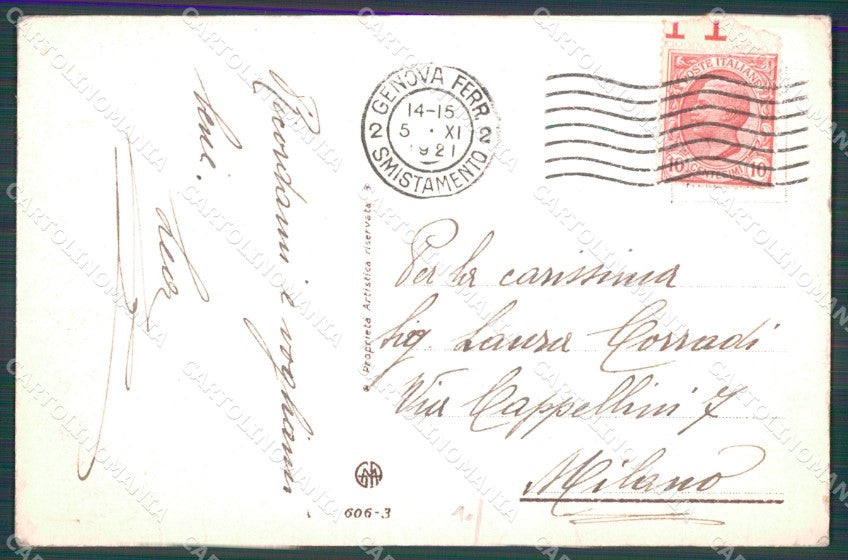 Ricordami e vogliami
bene.
GENOVA FERR.
14-15
5 • XI
1921
2 2
SMISTAMENTO
POSTE ITALIANE
10 CENTESIMI 10
Proprietà Artistica riservata
Per la carissima
Sig. Laura Corradi
Via Cappellini 7
Milano
606-3
CARTOLINOMANIA